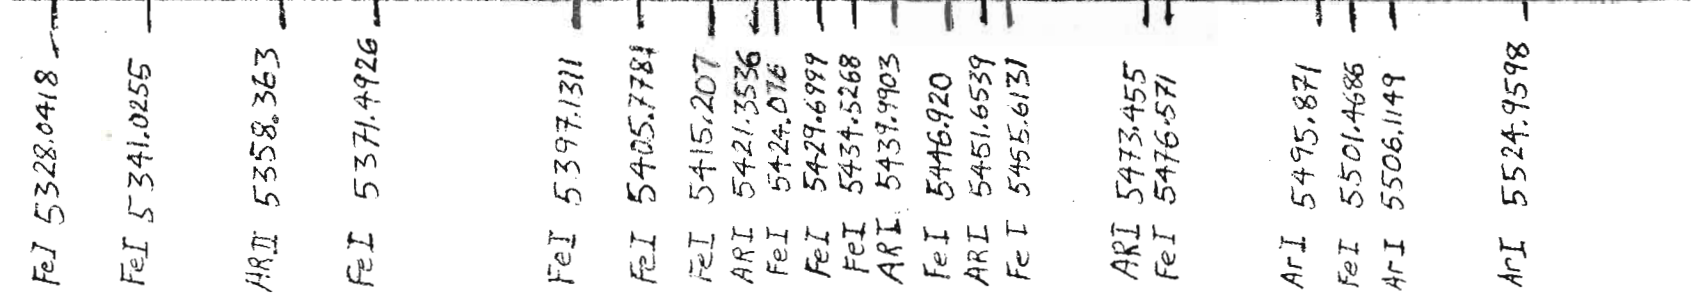 FeI 5328.0418
FeI 5341.0255
ARII 5358.363
FeI 5371.4926
FeI 5397.1311
FeI 5405.7781
FeI 5415.207
ARI 5421.3536
FeI 5424.076
FeI 5429.6999
FeI 5434.5268
ARI 5439.9903
FeI 5446.920
ARI 5451.6539
FeI 5455.6131
ARI 5473.455
FeI 5476.571
ArI 5495.871
FeI 5501.4686
ArI 5506.1149
ArI 5524.9598